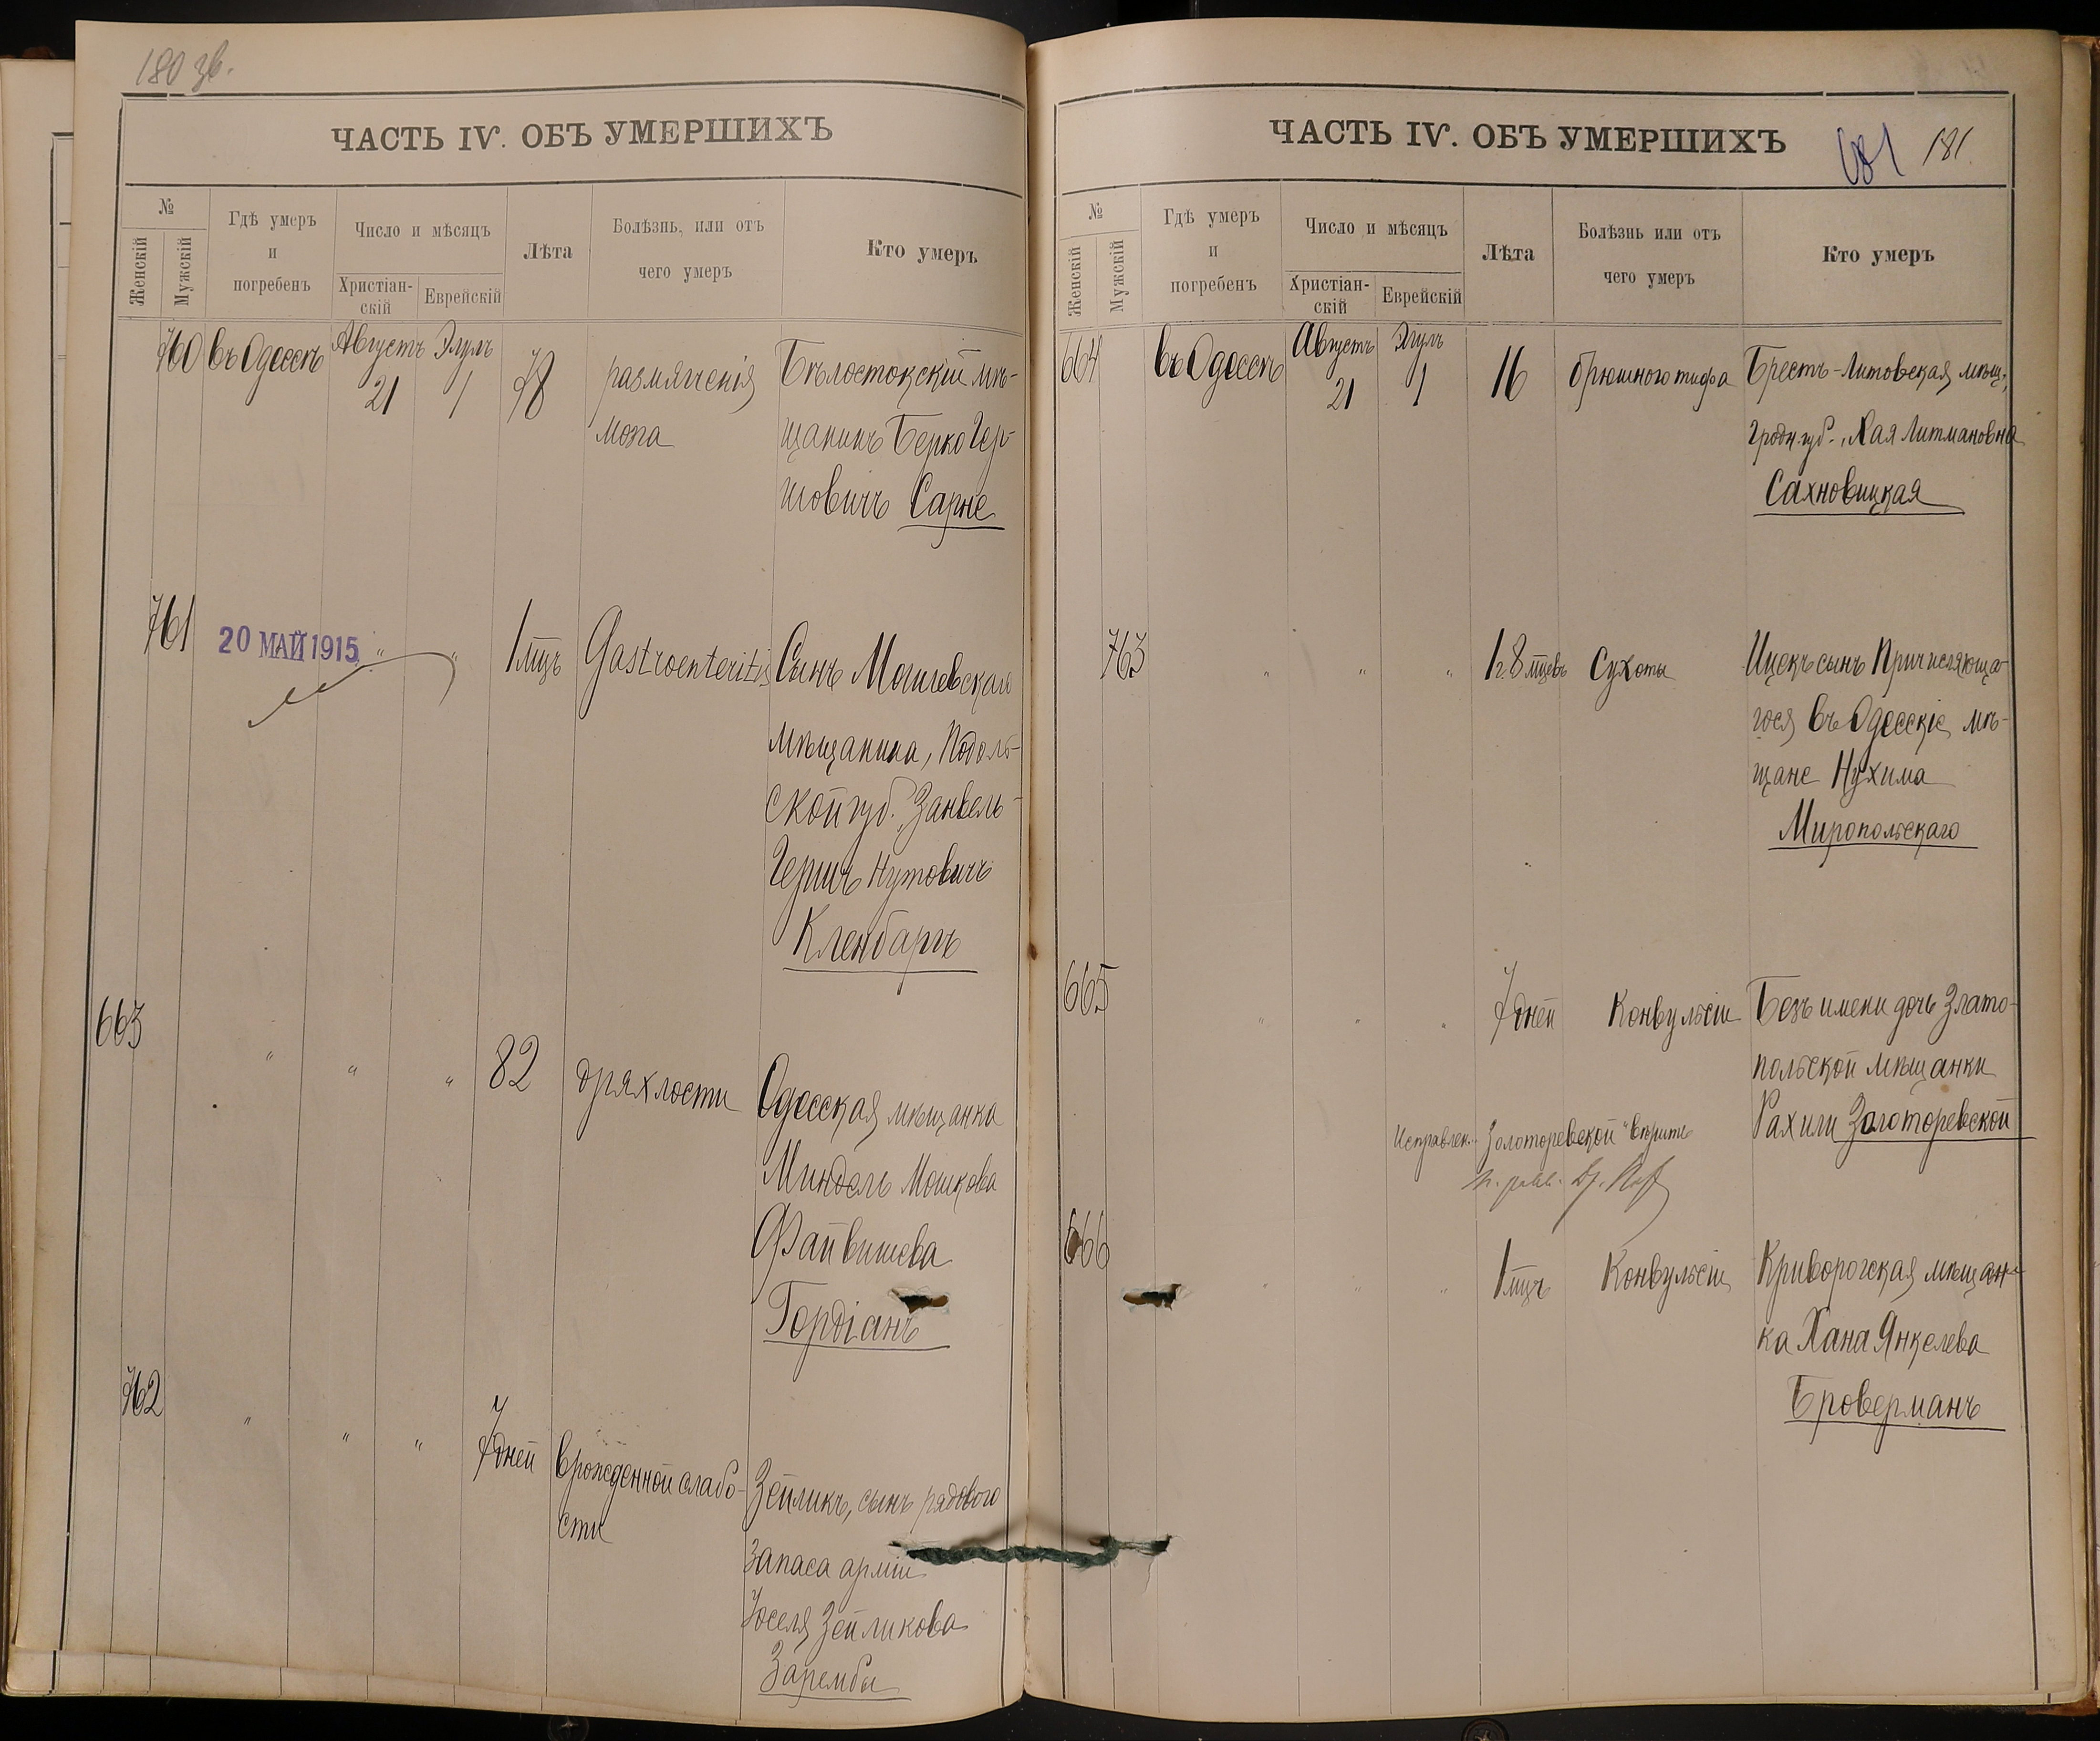 180 зв.
ЧАСТЬ IV. ОБЪ УМЕРШИХЪ
№
Женскій
Мужскій
Гдѣ умеръ
и
погребенъ
Число и мѣсяцъ
Христіан-
скій
Еврейскій
Лѣта
Болѣзнь, или отъ
чего умеръ
Кто умеръ
760 въ Одессѣ Августъ 21 Элулъ 1 78 размягченія Бѣлостокскій мѣ-
мозга щанинъ Берко Гер-
шовичъ Сарне
761 " " 1 мцъ Gastroenteritis Сынъ Могилевскаго
20 МАЙ 1915
мѣщанина, Подоль-
ской губ. Занвель-
Гершъ Нутовичъ
Кленбаргъ
663 " " " 82 дряхлости Одесская мѣщанка
Миндель Мошкова
Файвишева
Гордіанъ
762 " " " 7 дней врожденной слабо-
сти Зейликъ, сынъ рядового
запаса арміи
Іоселя Зейликова
Зарембы
ЧАСТЬ IV. ОБЪ УМЕРШИХЪ
181
№
Женскій
Мужскій
Гдѣ умеръ
и
погребенъ
Число и мѣсяцъ
Христіан-
скій
Еврейскій
Лѣта
Болѣзнь или отъ
чего умеръ
Кто умеръ
664 въ Одессѣ Августъ 21 Элулъ 1 16 брюшного тифа Брестъ-Литовская мѣщ.,
Гродн. губ., Хая Литмановна
Сахновицкая
763 " " " 1 г. 8 мцевъ Сухоты Ицекъ сынъ Причисляюща-
гося въ Одесскіе мѣ-
щане Нухима
Миропольскаго
665 " " " 7 дней Конвульсіи Безъ имени дочь Злато-
польской мѣщанки
Рахили Золоторевской
Исправлен. "Золоторевской" вѣрить
666 " " " 1 мцъ Конвульсіи Криворогская мѣщан-
ка Хана Янкелева
Броверманъ